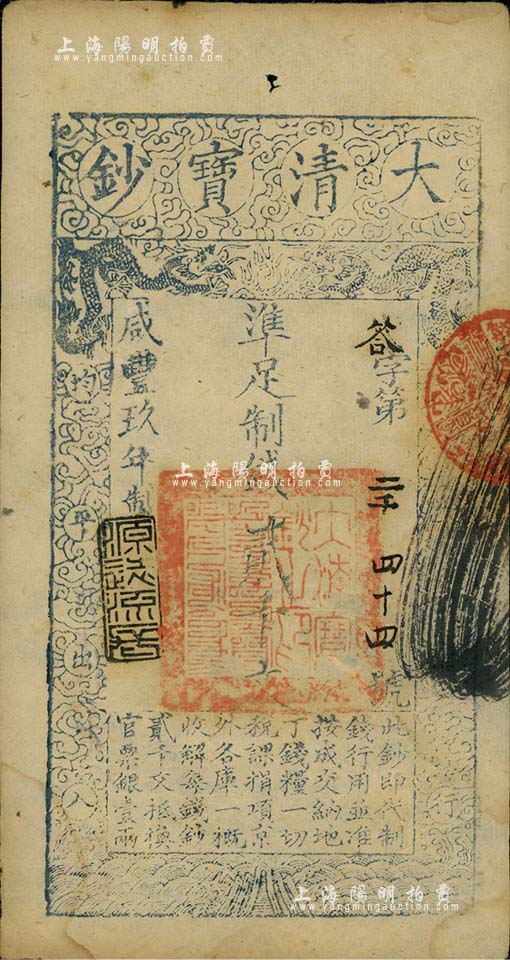 上海陽明拍賣
www.yangmingauction.com
大清寶鈔
答字第
二千
四十四
號
準足制錢貳千文
咸豐玖年制
均平出入
源遠流長
此鈔即代制
錢行用並准
按成交納地
丁錢糧一切
稅課捐項京
外各庫一概
收解每錢鈔
貳千文抵換
官票銀壹兩
上海陽明拍賣
www.yangmingauction.com
上海陽明拍賣
www.yangmingauction.com